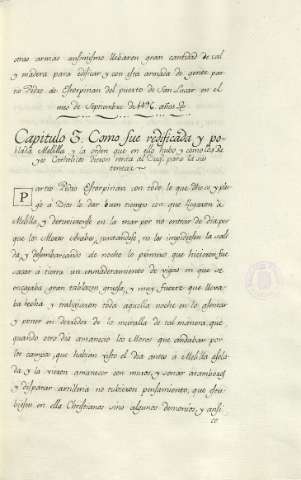 otras armas ansimismo llebaron gran cantidad de cal
y madera para edificar, y con esta armada de gente par-
tio Pedro de Estorpinan del puerto de San Lucar en el
mes de Septiembre de 1496. años
Capitulo 3. Como fue redificada y po-
blada Melilla y la orden que en ello hubo y como los Re-
yes Catholicos dieron renta al Duq. para la sus-
tentar
Partio Pedro Estorpinan con todo lo que Dho es, y plu-
go á Dios le dar buen tiempo con que llegaron á
Melilla, y detuvieronse en la mar por no entrar de dia por
que los Moros Alarabes, juntandose, no les impidiesen la sali-
da, y desembarcando de noche lo primero que hicieron fue
sacar á tierra un enmaderamiento de vigas en que se
encajaba gran tablazon gruesa, y muy fuerte que lleva-
ba hecha y trabajaron toda aquella noche en lo asentar
y poner en derredor de la muralla de tal manera, que
quando otro dia amanecio los Moros que andaban por
los campos que habian visto el dia antes á Melilla asola-
da y la vieron amanecer con muros, y sonar atambores
y disparar artilleria no tubieron pensamiento, que estu-
biesen en ella Christianos sino algunos demonios, y ansi